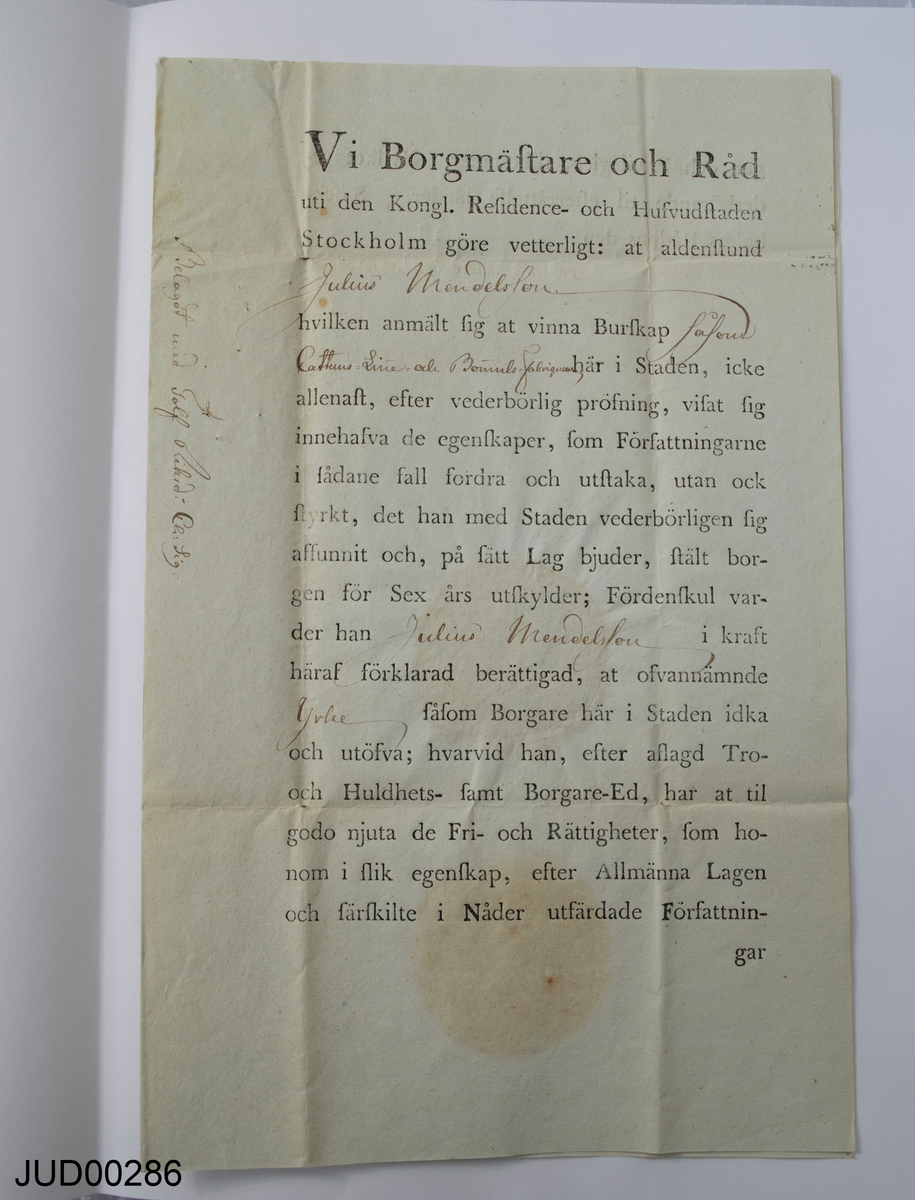 Vi Borgmäſtare och Råd
uti den Kongl. Reſidence- och Hufvudſtaden
Stockholm göre vetterligt: at aldenſtund
Julius Mendelsson
hvilken anmält ſig at vinna Burſkap ſåſom
Cattuns-Linne- och Bomuls-fabriqueur här i Staden, icke
allenaſt, efter vederbörlig pröfning, viſat ſig
innehafva de egenſkaper, ſom Författningarne
i ſådane fall fordra och utſtaka, utan ock
ſtyrkt, det han med Staden vederbörligen ſig
affunnit och, på ſätt Lag bjuder, ſtält bor-
gen för Sex års utſkylder; Fördenſkul var-
der han Julius Mendelsson i kraft
häraf förklarad berättigad, at ofvannämnde
Yrke ſåſom Borgare här i Staden idka
och utöfva; hvarvid han, efter aflagd Tro-
och Huldhets- ſamt Borgare-Ed, har at til
godo njuta de Fri- och Rättigheter, ſom ho-
nom i ſlik egenſkap, efter Allmänna Lagen
och färſkilte i Nåder utfärdade Författnin-
gar
Belagdt med Tolf
JUD00286